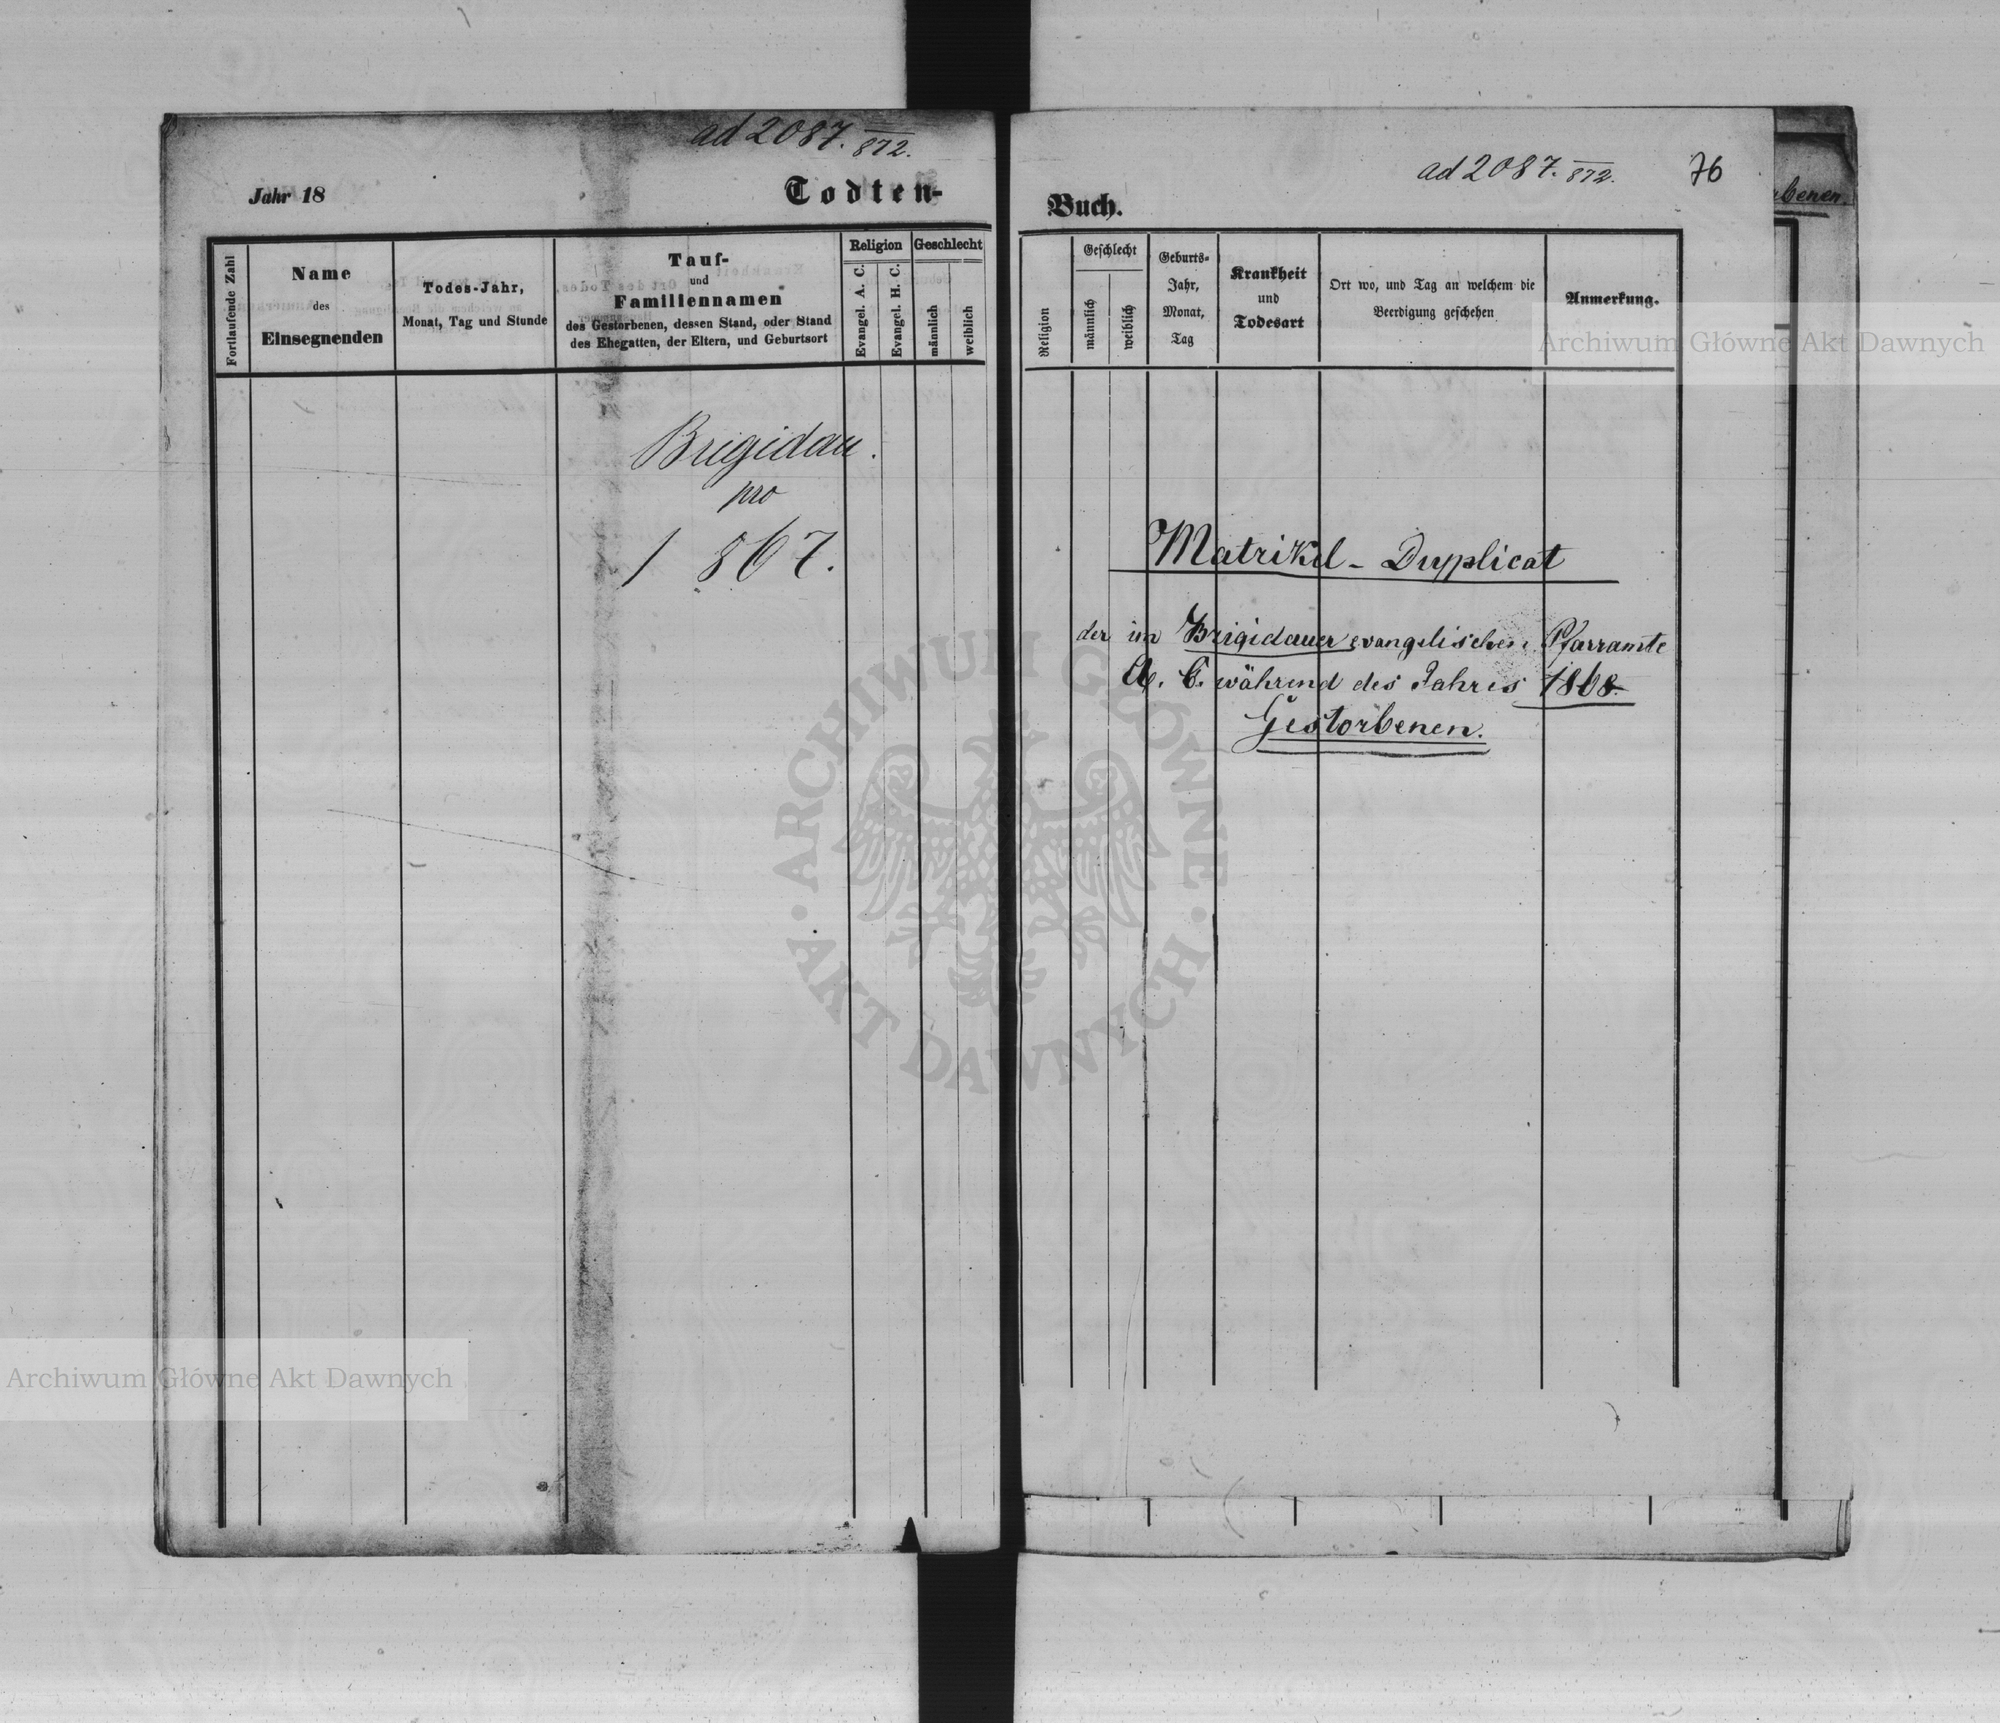 ad 2087. 872.
Jahr 18
Todten-
Fortlaufende Zahl
Name
des
Einsegnenden
Todes-Jahr,
Monat, Tag und Stunde
Tauf-
und
Familiennamen
des Gestorbenen, dessen Stand, oder Stand
des Ehegatten, der Eltern, und Geburtsort
Religion
Evangel. A. C.
Evangel. H. C.
Geschlecht
männlich
weiblich
Brigidau.
pro
1867.
ad 2087. 872.
76
Buch.
Religion
Geschlecht
männlich
weiblich
Geburts-
Jahr,
Monat,
Tag
Krankheit
und
Todesart
Ort wo, und Tag an welchem die
Beerdigung geschehen
Anmerkung.
Matrikel-Duplicat
der im Brigidauer evangelischen Pfarramte
A. C. während des Jahres 1868
Gestorbenen.
benen.
Archiwum Główne Akt Dawnych
ARCHIWUM GŁÓWNE · AKT DAWNYCH ·
Archiwum Główne Akt Dawnych